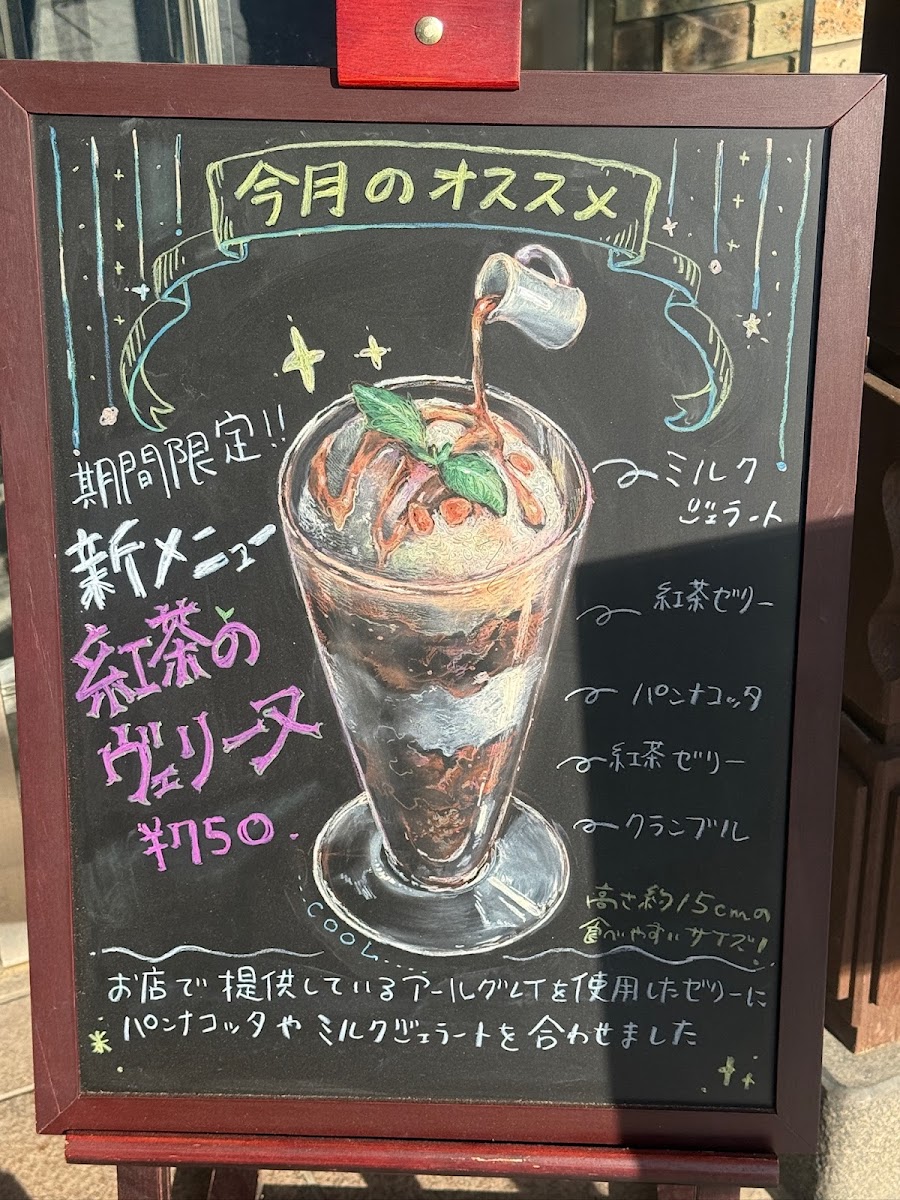 今月のオススメ
期間限定!!
新メニュー
紅茶の
ヴェリーヌ
¥750
ミルク
ジェラート
紅茶ゼリー
パンナコッタ
紅茶ゼリー
クランブル
高さ約15cmの
食べやすいサイズ!
COOL
お店で提供しているアールグレイを使用したゼリーに
パンナコッタやミルクジェラートを合わせました